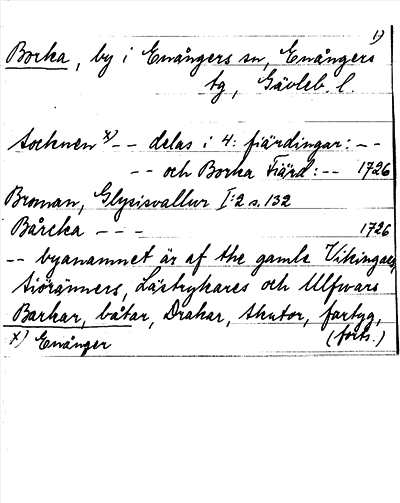 1)
Borka, by i Enångers sn, Enångers
tg, Gävleb. l.
socknen x) -- delas i 4: fiärdingar: --
-- och Borka Fiärd: -- 1726
Broman, Glysisvallur I:2 s. 132
Bårcka - - - 1726
-- byanamnet är af the gamle Vikingars,
Siöränners, Lästrykares och Ulfwars
Barkar, båtar, Drakar, skutor, fartyg,
x) Enånger (forts.)